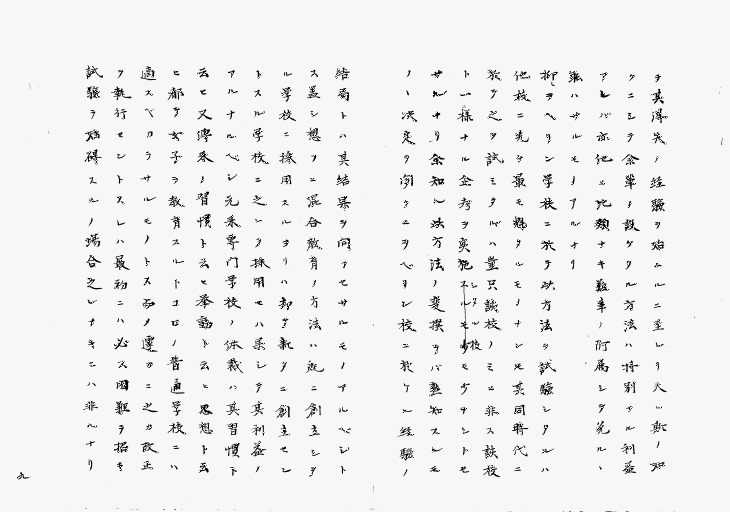 ヲ其得失ノ経験ヲ始ムルニ至レリ夫レ斯ノ如
クニシテ余輩ノ設ケタル方法ハ特別ナル利益
アレバ亦他ニ比類ナキ難事ノ附属シテ免ル丶
能ハサルモノアルナリ
抑ヲベリン学校ニ於テ此方法ヲ試験シタルハ
他校ニ先タ最モ タルモノナレ 其同時代ニ
於テ之ヲ試ミタルハ豈只該校ノミニ非ス該校
ト一様ナル企考ヲ実施 シタル校モ トモ
サルナリ余知ル此方法ノ変換 バ熟知スルモ
ノ丶決定ヲ聞クニヲベリン校ニ於ケル経験ノ
結局トハ其結果ヲ同フセサルモノアルベシト
ス蓋シ想フニ混合教育ノ方法ハ既ニ創立シタ
ル学校ニ採用スルヨリハ却テ新タニ創立セン
トスル学校ニ之レヲ採用セハ果シテ其利益ノ
アルナルベシ元来専門学校ノ体裁ハ其習慣ト
云ヒ又従来ノ習慣ト云ヒ挙動ト云ヒ思想ト云
ヒ都テ女子ヲ教育スルトコロノ普通学校ニハ
適スベカラサルモノトス而 遽カニ之カ改正
ヲ執行セントスレハ最初ニハ必ス困難ヲ招キ
試験ヲ妨碍スルノ場合之レナキニハ非ルナリ
九